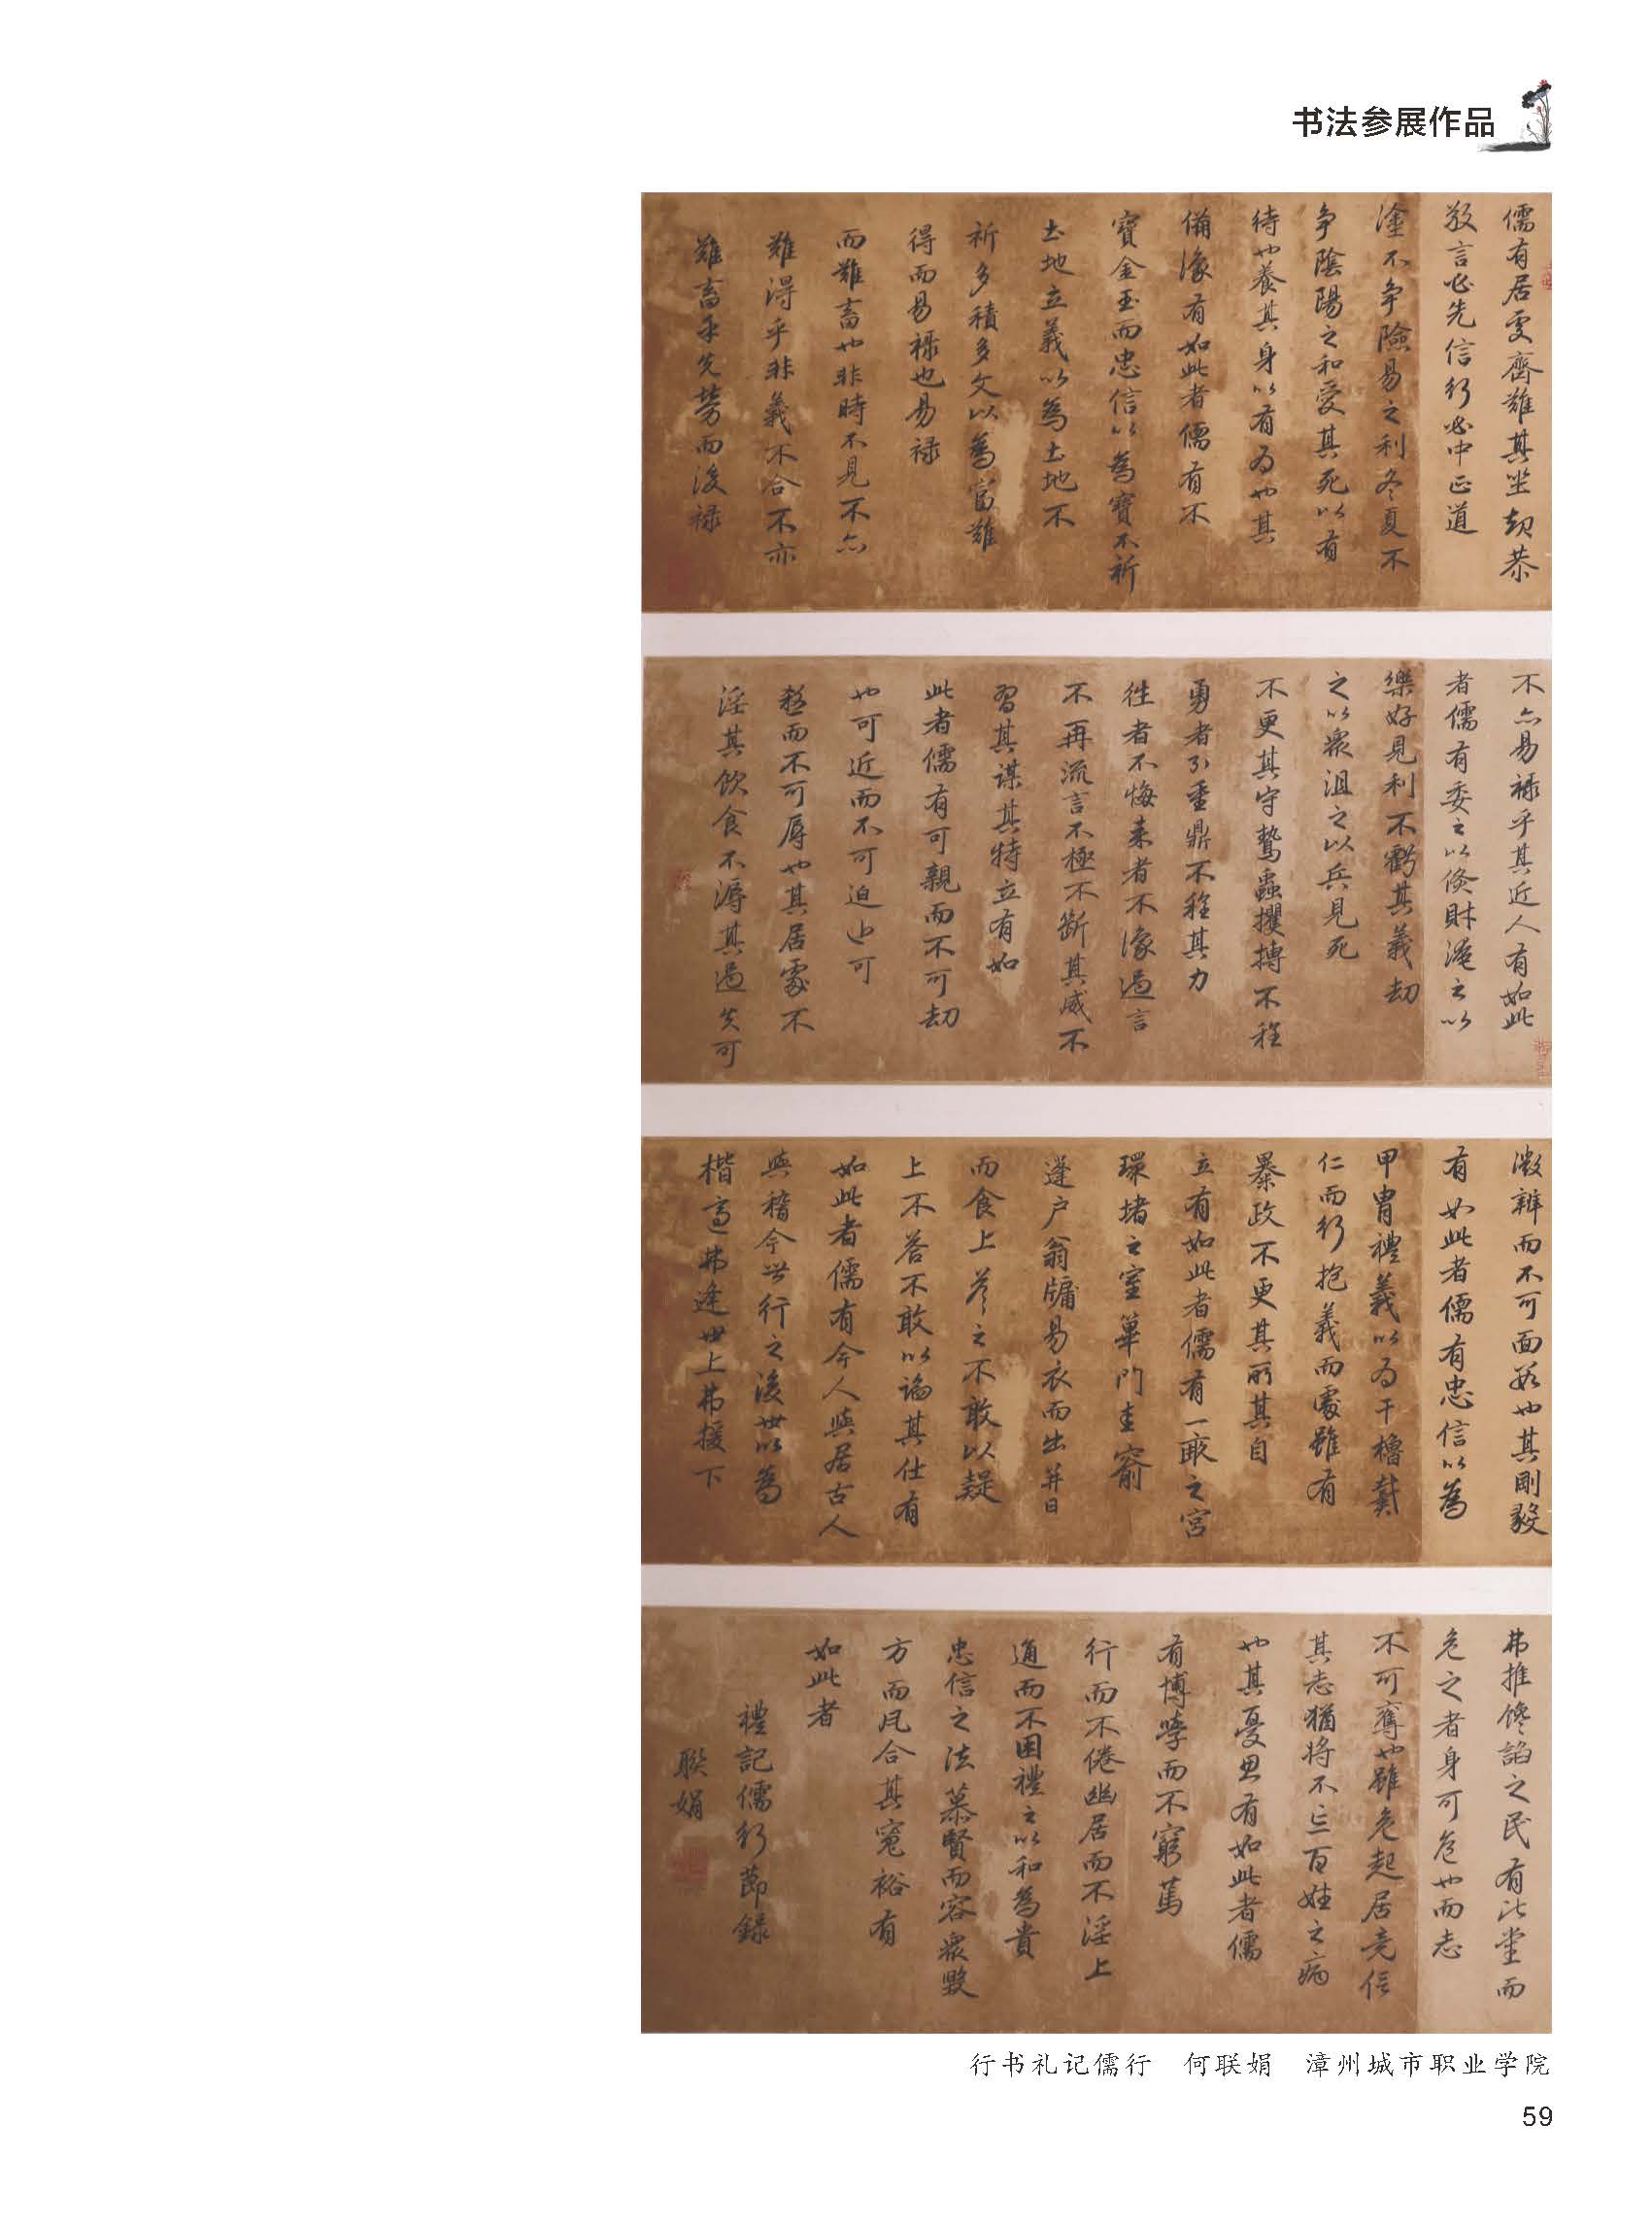 书法参展作品
儒有居處齊難其坐起恭
敬言必先信行必中正道
塗不争險易之利冬夏不
争陰陽之和愛其死以有
待也養其身以有為也其
備豫有如此者儒有不
寶金玉而忠信以為寶不祈
土地立義以為土地不
祈多積多文以為富難
得而易禄也易禄
而難畜也非時不見不亦
難得乎非義不合不亦
難畜乎先勞而後禄
不亦易禄乎其近人有如此
者儒有委之以貨財淹之以
樂好見利不虧其義劫
之以衆沮之以兵見死
不更其守鷙蟲攫搏不程
勇者引重鼎不程其力
往者不悔来者不豫過言
不再流言不極不斷其威不
習其謀其特立有如
此者儒有可親而不可劫
也可近而不可迫也可
殺而不可辱也其居處不
淫其飲食不溽其過失可
微辨而不可面數也其剛毅
有如此者儒有忠信以為
甲胄禮義以为干櫓戴
仁而行抱義而處雖有
暴政不更其所其自
立有如此者儒有一畝之宫
環堵之室篳門圭窬
蓬户翁牖易衣而出并日
而食上荅之不敢以疑
上不荅不敢以諂其仕有
如此者儒有今人與居古人
與稽今世行之後世以為
楷適弗逢世上弗援下
弗推讒諂之民有比黨而
危之者身可危也而志
不可奪也雖危起居竟信
其志猶将不忘百姓之病
也其憂思有如此者儒
有博學而不窮篤
行而不倦幽居而不淫上
通而不困禮之以和為貴
忠信之法慕賢而容衆毁
方而瓦合其寬裕有
如此者
禮記儒行節録
聯娟
行书礼记儒行 何联娟 漳州城市职业学院
59